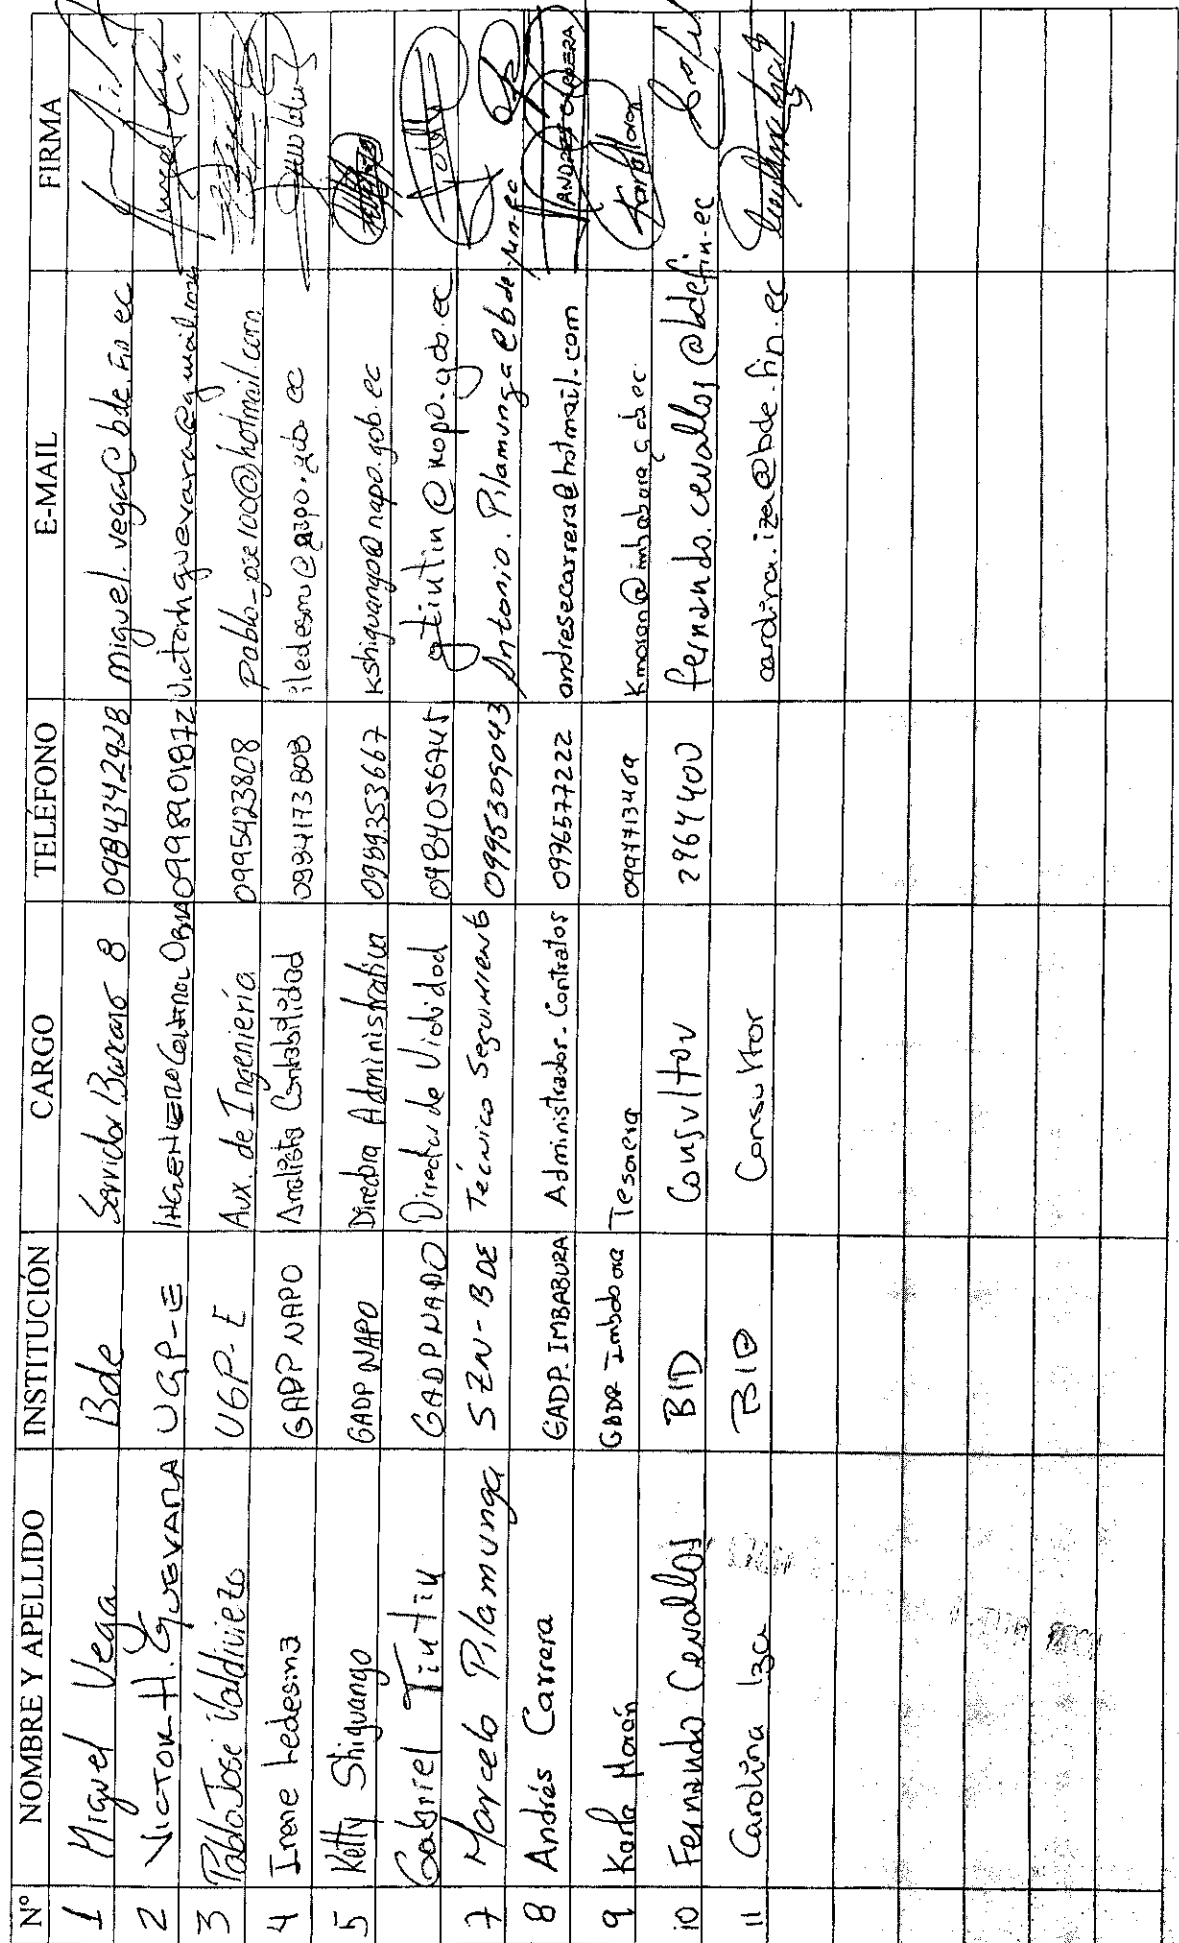 Nº NOMBRE Y APELLIDO INSTITUCIÓN CARGO TELÉFONO E-MAIL FIRMA
1 Miguel Vega Bde Servidor Bancario 8 0984342928 miguel.vega@bde.fin.ec
2 VICTOR H. GUEVARA UGP-E INGENIERO CONTROL OBRA 0998901872
3 Pablo José Valdiviezo UGP-E Aux. de Ingeniería 0995423808 Pablo-jose100@hotmail.com
4 Irene Ledesma GADP NAPO Analista Contabilidad iledesma@napo.gob.ec
5 Kelly Shiguango GADP NAPO Directora Administrativa 0989353667 kshiguango@napo.gob.ec
Gabriel Tiutiu GADP NAPO Director de Vialidad 0984056745
7 Marcelo Pilamunga SZN-BDE Técnico Seguimiento 0995309043 Antonio.Pilamunga@bde.fin.ec
8 Andrés Carrera GADP. IMBABURA Administrador - Contratos 0996577222 andresecarrera@hotmail.com ANDRES CARRERA
9 Karla Morán GADP Imbabura Tesorera 0997713469 Kmoran@imbabura.gob.ec
10 Fernando Cevallos BID Consultor 2964400 fernando.cevallos@bdefin.ec
11 Carolina Iza BID Consultor carolina.iza@bde.fin.ec